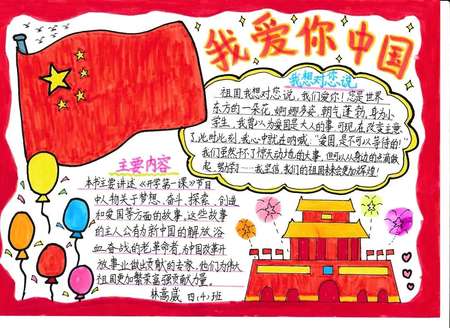 我爱你中国
我想对您说
祖国我想对您说，我们爱你！您是世界
东方的一朵花，婀娜多姿，朝气蓬勃，身为小
学生，我曾以为爱国是大人的事，可现在改变主意
了，此时此刻，我心中就在呐喊，“爱国，是不可以等待的！”
我们虽然干不了惊天动地的大事，但可以从身边的点滴做
起，努力学习……我坚信，我们的祖国未来会更加辉煌！
主要内容
本书主要讲述《开学第一课》节目
中人物关于梦想、奋斗、探索、创造
和爱国等方面的故事，这些故事
的主人公有为新中国的解放浴
血奋战的老革命者，为中国改革开
放事业做出贡献的专家，他们为伟大
祖国更加繁荣富强贡献力量。
林高崴 四（4）班